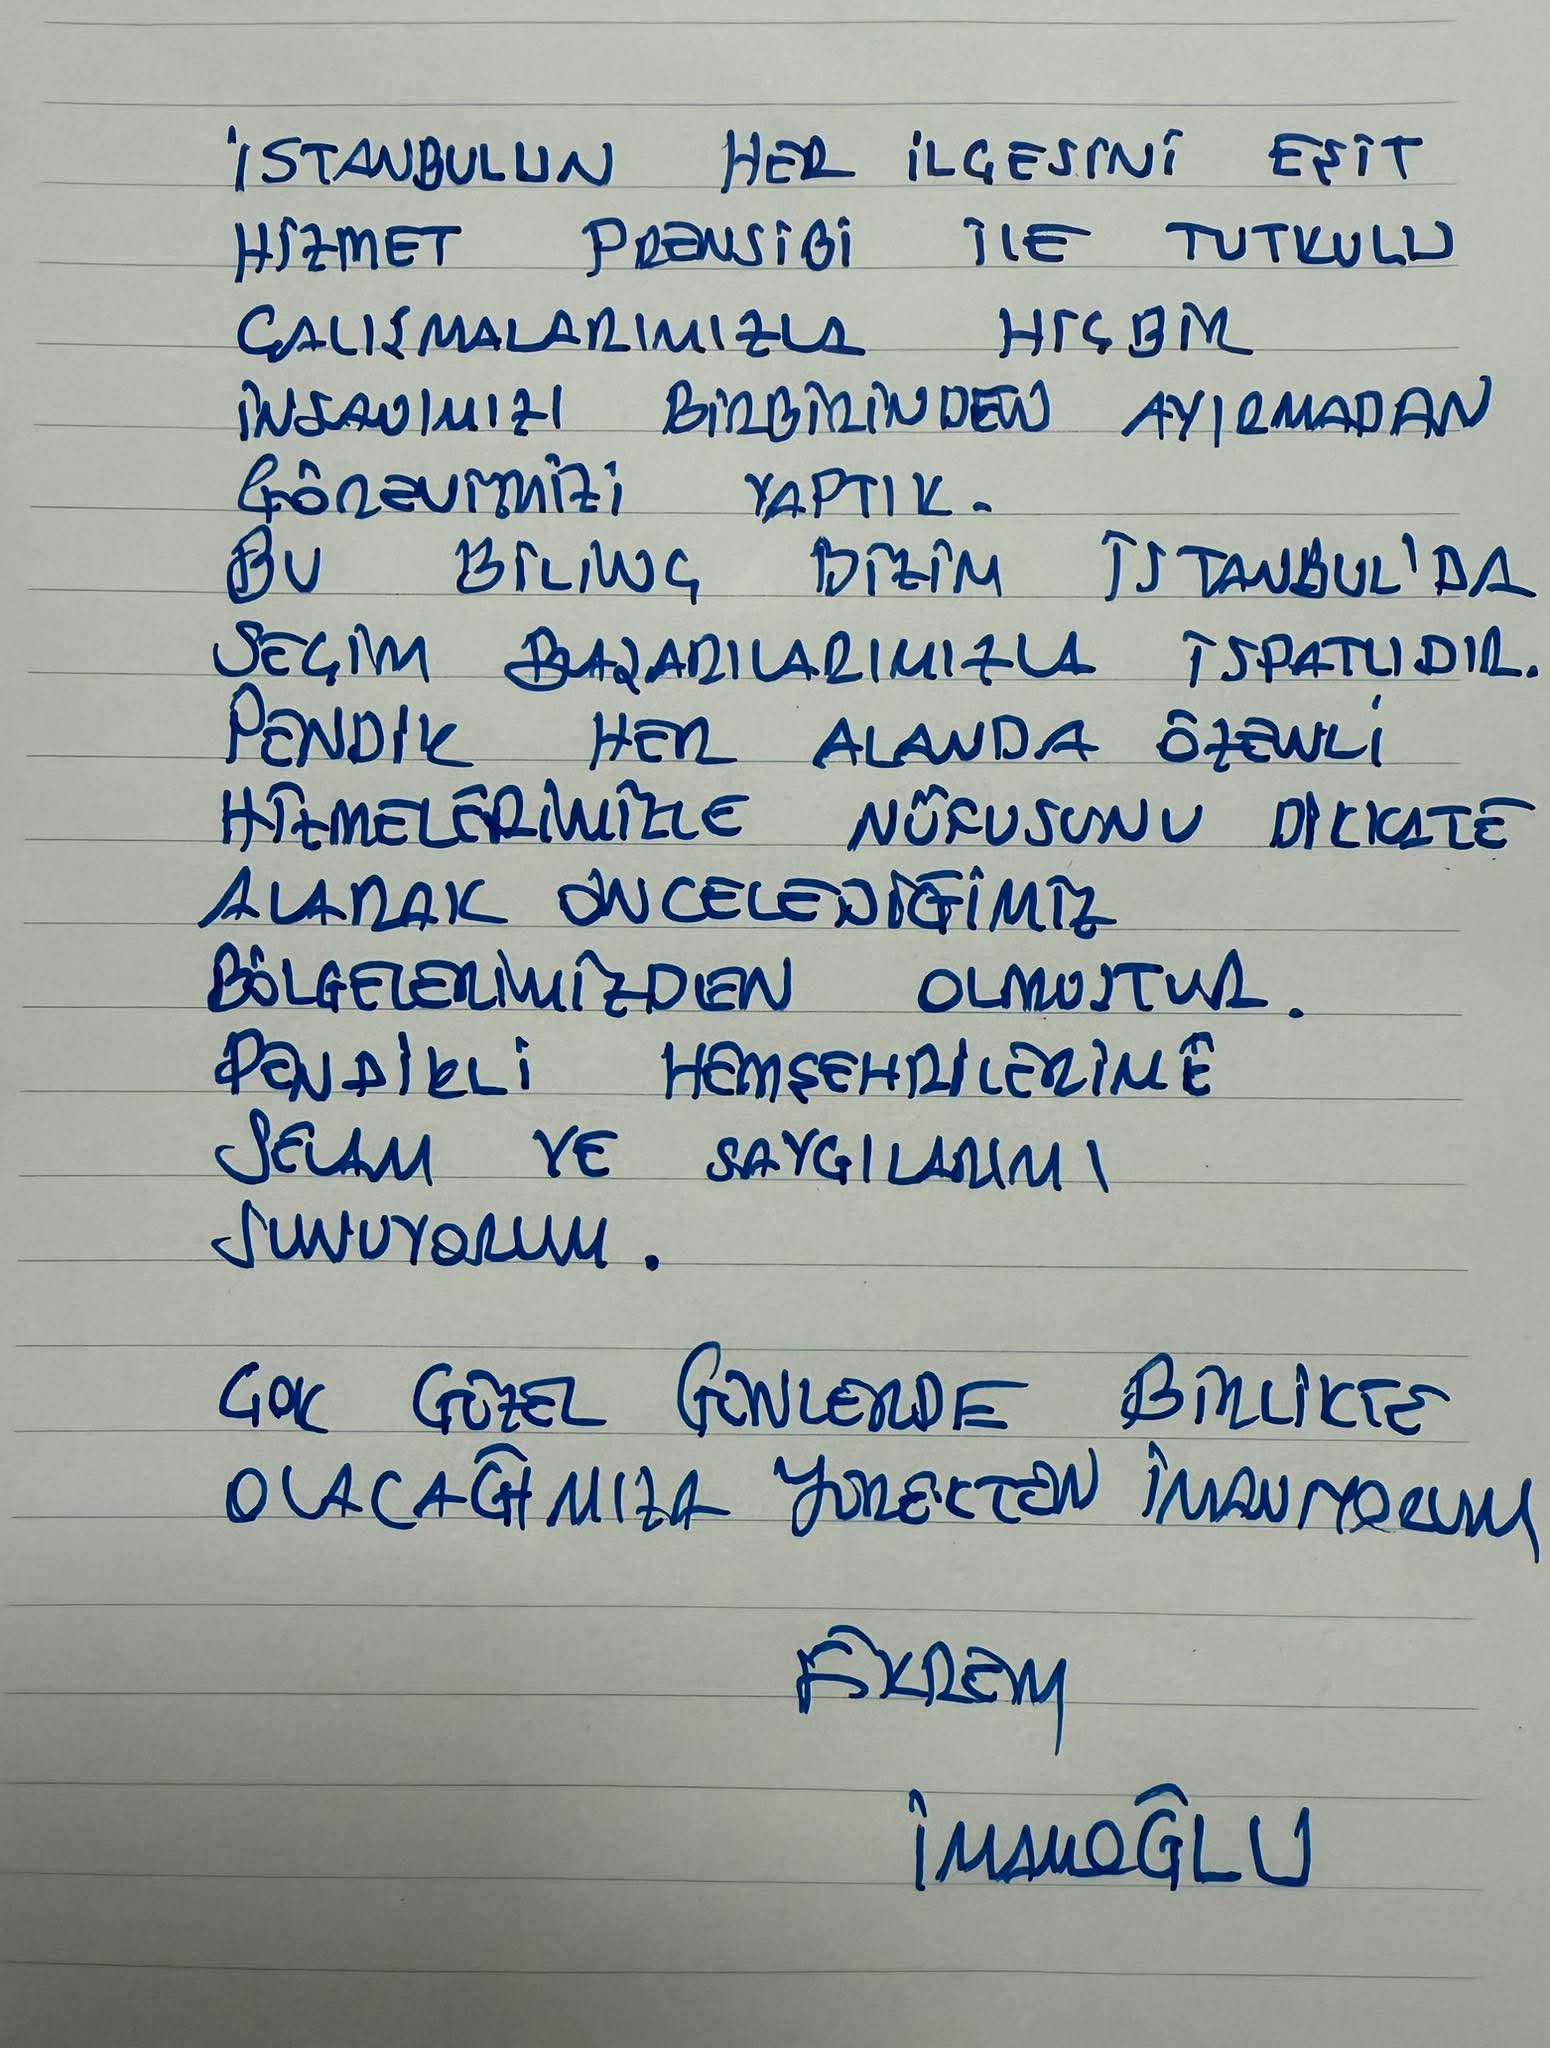 İSTANBULUN HER İLÇESİNİ EŞİT
HİZMET PRENSİBİ İLE TUTKULU
ÇALIŞMALARIMIZLA HİÇBİR
İNSANIMIZI BİRBİRİNDEN AYIRMADAN
GÖREVİMİZİ YAPTIK.
BU BİLİNÇ BİZİM İSTANBUL'DA
SEÇİM BAŞARILARIMIZLA İSPATLIDIR.
PENDİK HER ALANDA ÖZENLİ
HİZMELERİMİZLE NÜFUSUNU DİKKATE
ALARAK ÖNCELEDİĞİMİZ
BÖLGELERİMİZDEN OLMUSTUR.
PENDİKLİ HEMŞEHRİLERİME
SELAM VE SAYGILARIMI
SUNUYORUM.
ÇOK GÜZEL GÜNLERDE BİRLİKTE
OLACAĞIMIZA YÜREKTEN İNANIYORUM
EKREM
İMAMOĞLU